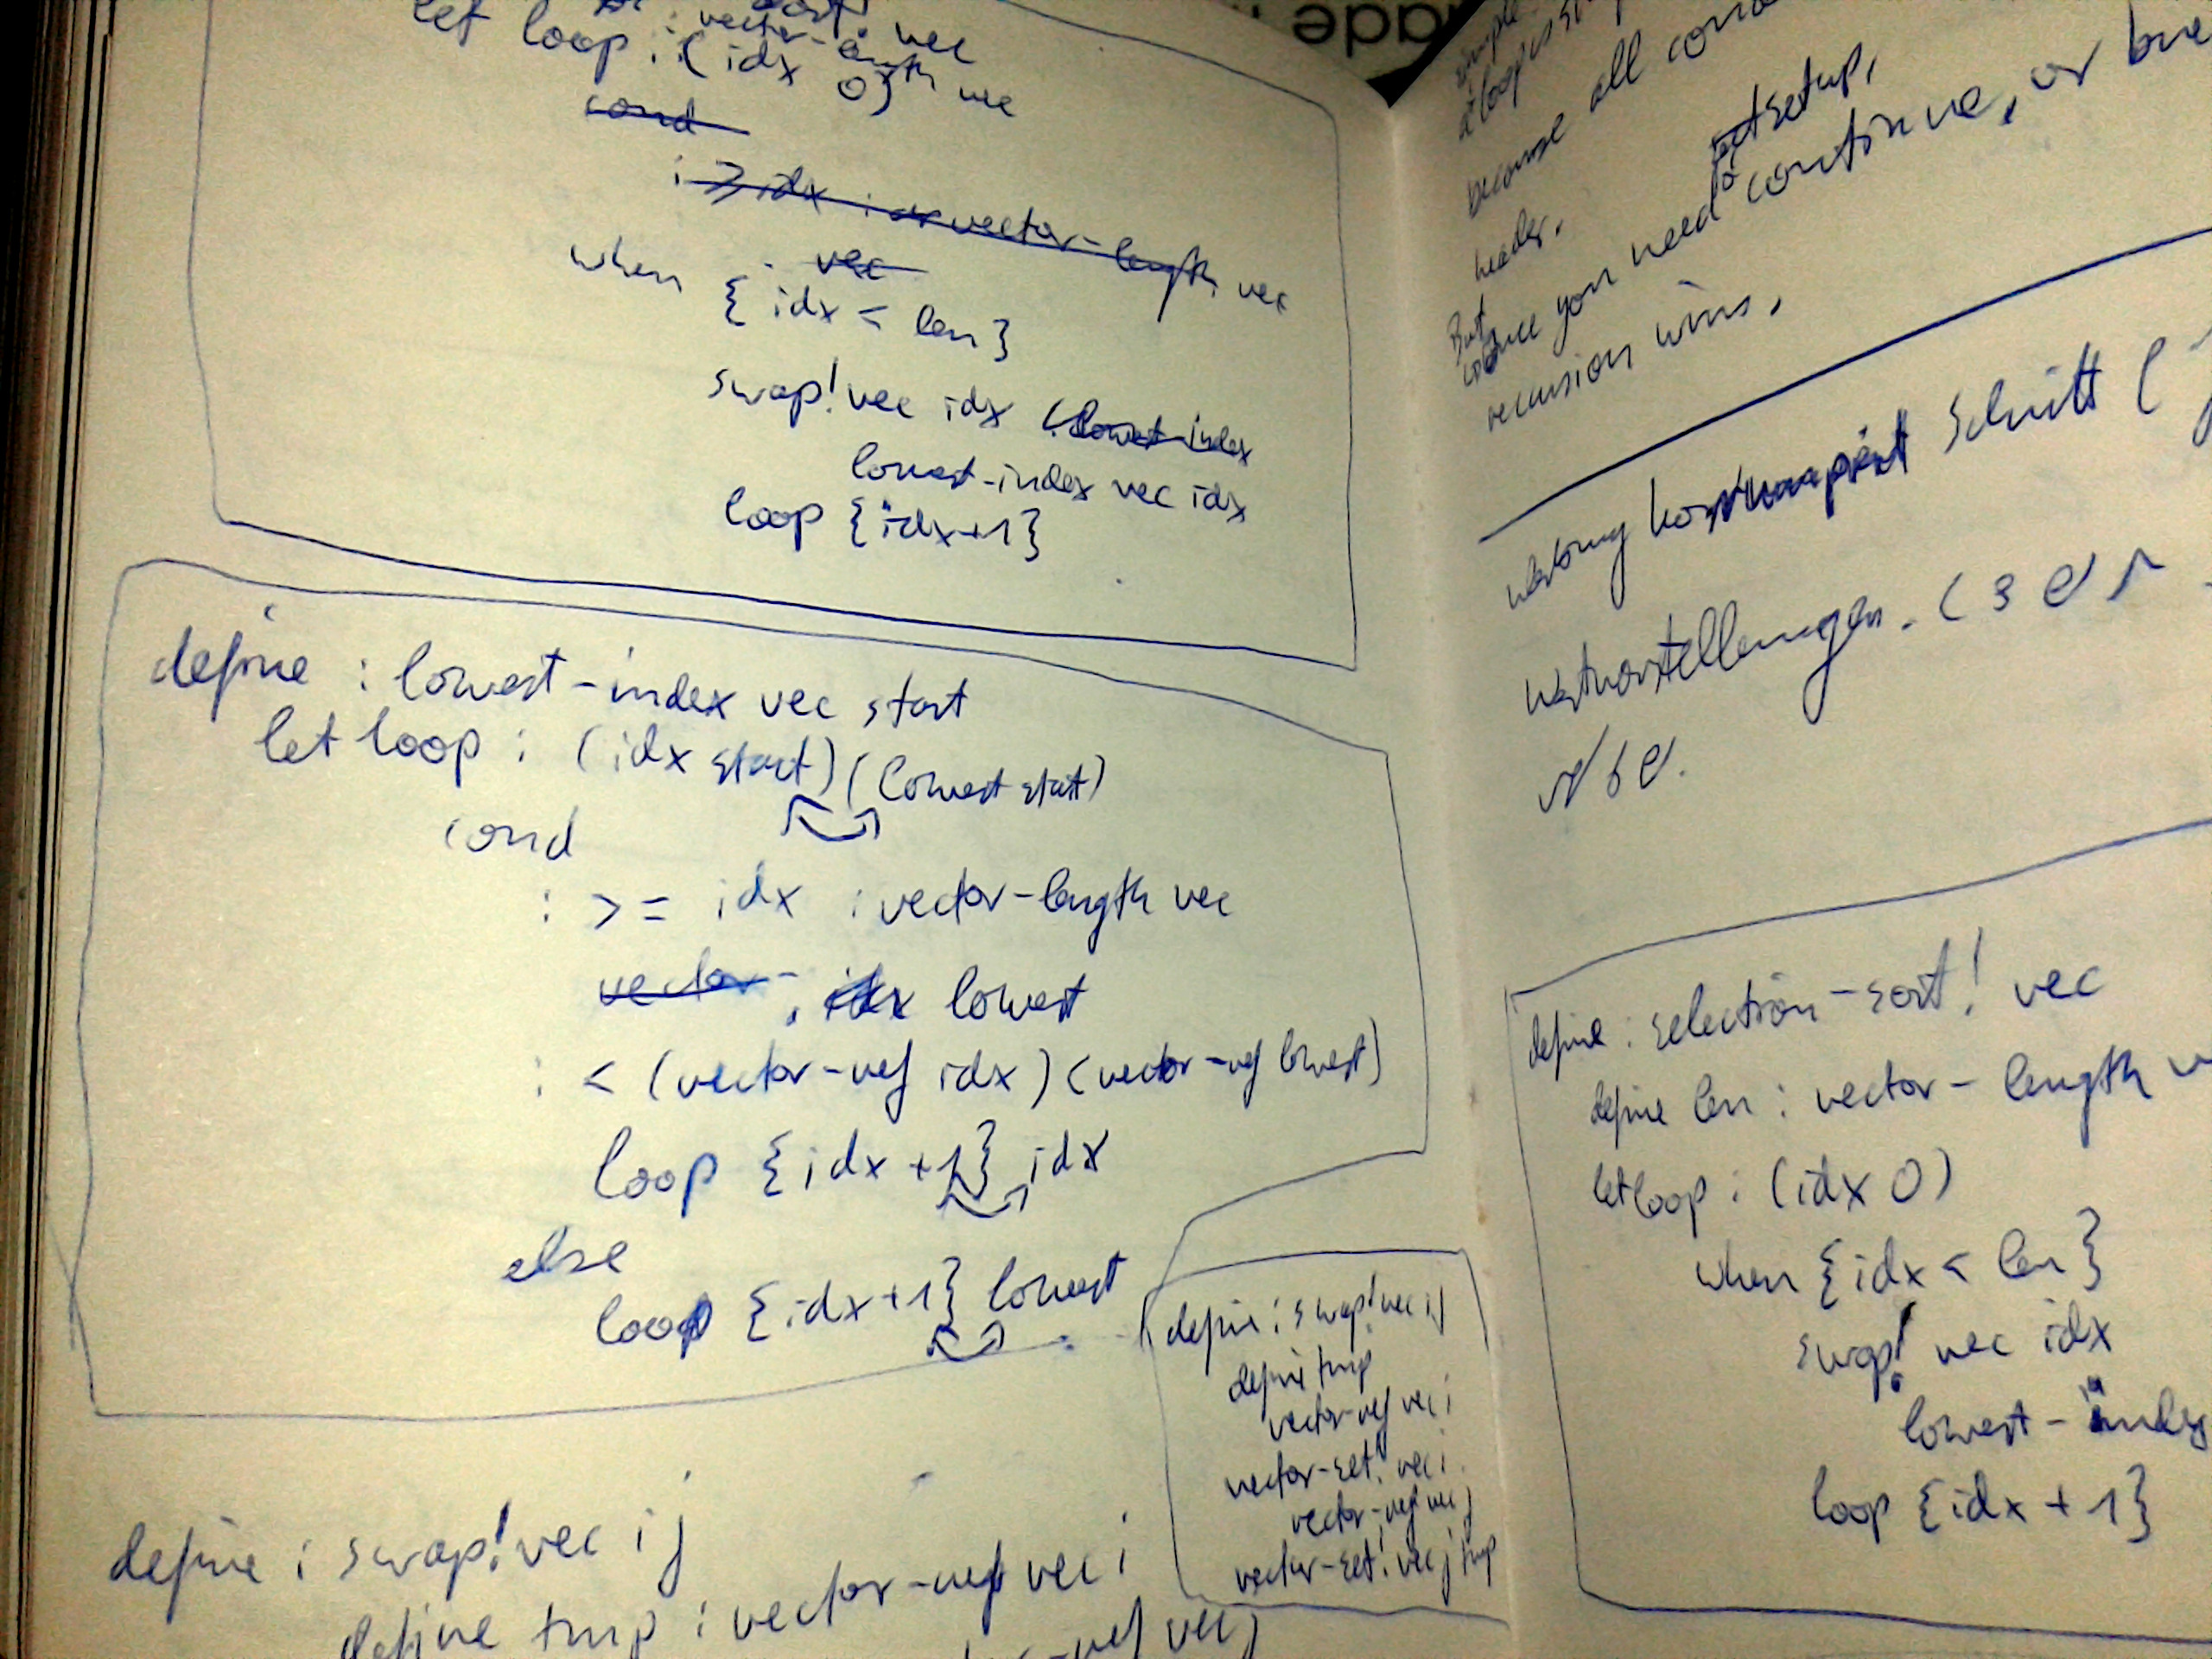 let loop : ( idx 0 )
vec
vector-length vec
cond
: >= idx : vector-length vec
vec
when { idx < len }
swap! vec idx (lowest-index
lowest-index vec idx
loop {idx+1}
define : lowest-index vec start
let loop : (idx start) (lowest start)
cond
: >= idx : vector-length vec
vector- idx lowest
: < (vector-ref idx) (vector-ref lowest)
loop {idx+1} idx
else
loop {idx+1} lowest
define : swap! vec i j
define tmp
vector-ref vec i
vector-set! vec i
vector-ref vec j
vector-set! vec j tmp
define : swap! vec i j
define tmp : vector-ref vec i
-ref vec j
ade
simple
a loop is
because all
header.
setup,
But once you need to continue, or
recursion wins.
Schritt (
define : selection-sort! vec
define len : vector-length
let loop : (idx 0)
when {idx < len}
swap! vec idx
lowest-index
loop {idx + 1}